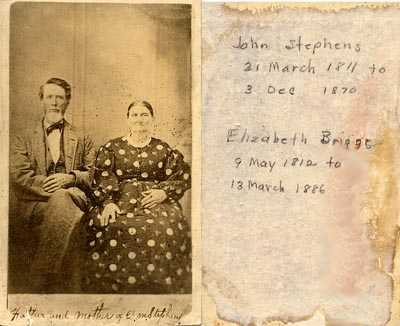 Father and mother of E. m Stephens
John Stephens
21 March 1811 to
3 Dec 1870
Elizabeth Briggs
9 May 1812 to
13 March 1886